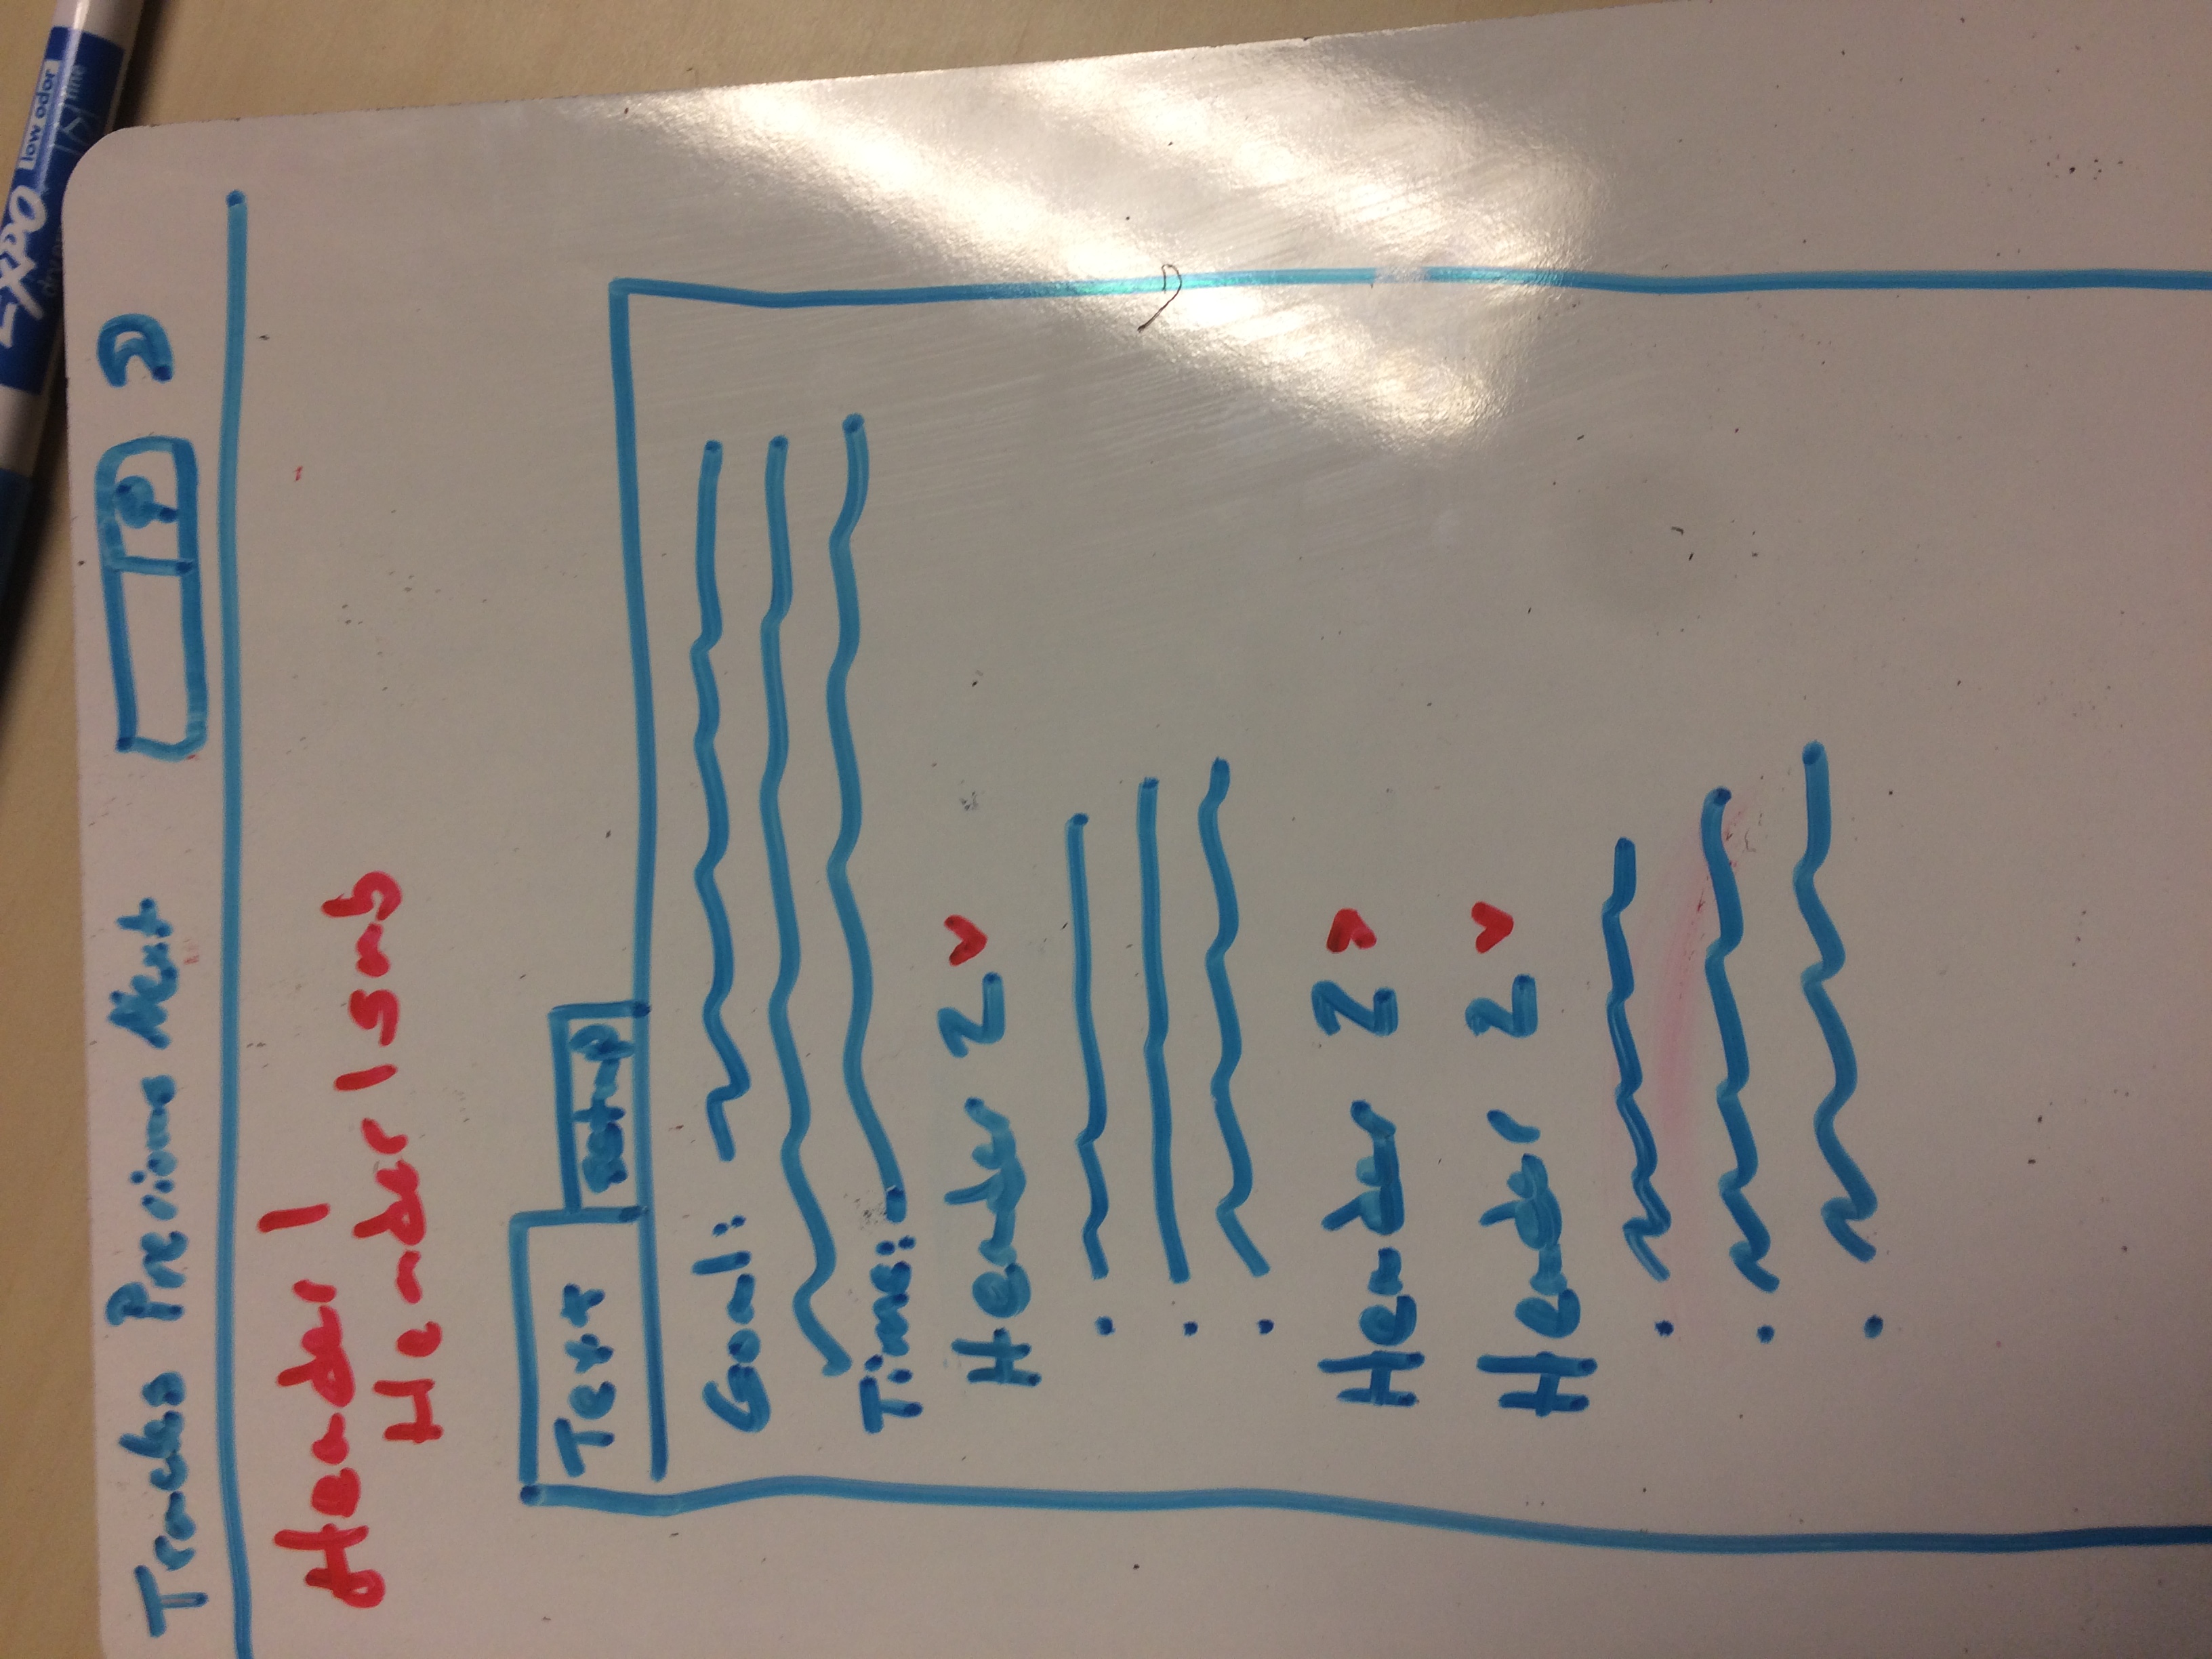 EXPO low odor
fine
Tracks Previous Next
Header 1
Header 1 sub
Text setup
Goal:
Time:
Header 2
Header 2 >
Header 2